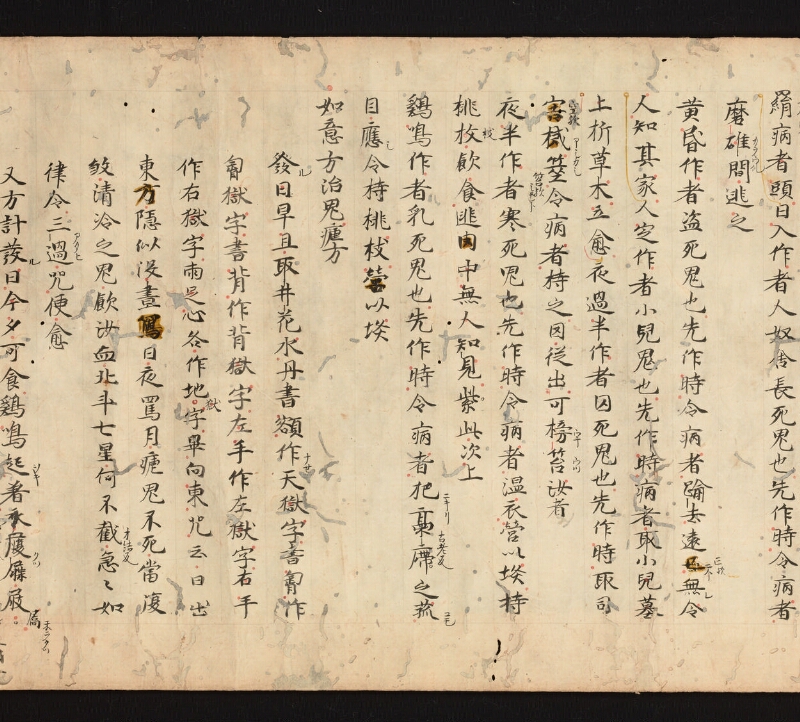 絹病者頭日入作者人奴舎長死鬼也先作時令病者
磨碓間逃之
黄昏作者盗死鬼也先作時令病者踰去遠無令
人知其家人定作者小兒鬼也先作時病者取小兒墓
上折草木立愈夜過半作者囚死鬼也先作時取司
令病者持之因從出可榜笞汝者
夜半作者寒死鬼也先作時令病者温衣營以埃持
桃枚飲食匪中無人知見此次上
鷄鳴作者乳死鬼也先作時令病者把藁席之
目應令持桃枝營以埃
如意方治鬼瘧方
發日早旦取井花水丹書額作天獄字書胷作
胷獄字書背作背獄字左手作左獄字右手
作右獄字兩足心各作地字畢向東咒云日出
東方隱似没盡日夜罵月瘧鬼不死當復
敓清冷之鬼飲汝血北斗七星何不截急々如
律令三過咒便愈
又方計發日今夕可食鷄鳴起着履屐